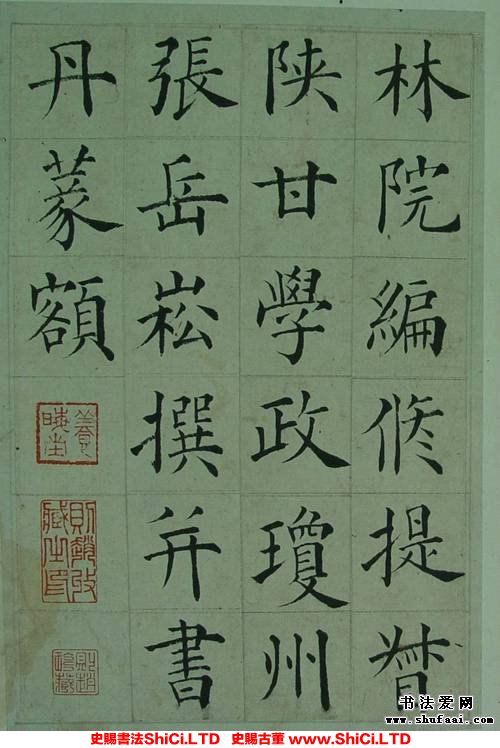 林院編修提督
陝甘學政瓊州
張岳崧撰并書
丹篆額
书法爱网
www.shufaai.com
史賜書法ShiCi.LTD 史賜古董 www.ShiCi.LTD